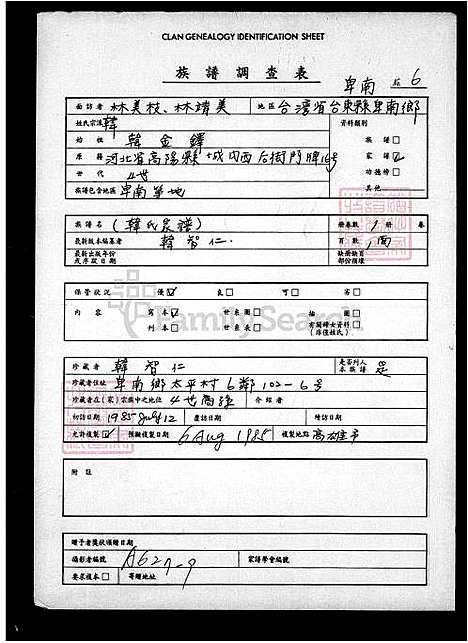 CLAN GENEALOGY IDENTIFICATION SHEET
族譜調查表
卑南 6
查訪者 林美枝、林靖美 地區 台灣省台東縣卑南鄉
姓氏宗派 韓 資料類別
始祖 韓金鐸 族譜□
原籍 河北省高陽縣城內西后街門牌16号 家譜☑
世代 4世 功德榜□
族譜包含地區 卑南等地 其他
族譜名 (韓氏家譜) 冊卷數 1 冊 卷
最新版本編纂者 韓智仁 頁數 1面
最新出版年份 缺冊缺頁
或序跋日期 部份崩壞
保管狀況 優☑ 良□ 可□ 劣□
內容 寫本☑ 世系圖□ 插圖□
刊本□ 世系表□ 有關婦女資料□
(非僅姓氏)
FamilySearch
珍藏者 韓智仁 是否列入本族譜 是
珍藏者住址 卑南鄉太平村6鄰102-6号
珍藏者在(家)宗族中之地位 4世 介紹者
初訪日期 1985 July 12 覆訪日期 續訪日期
允許複製☑ 預擬複製日期 6 Aug 1985 複製地點 高雄市
附註
贈予者獎狀頒贈日期
攝影者編號 A627-9 家譜學會編號
要求複本□ 寄贈地址